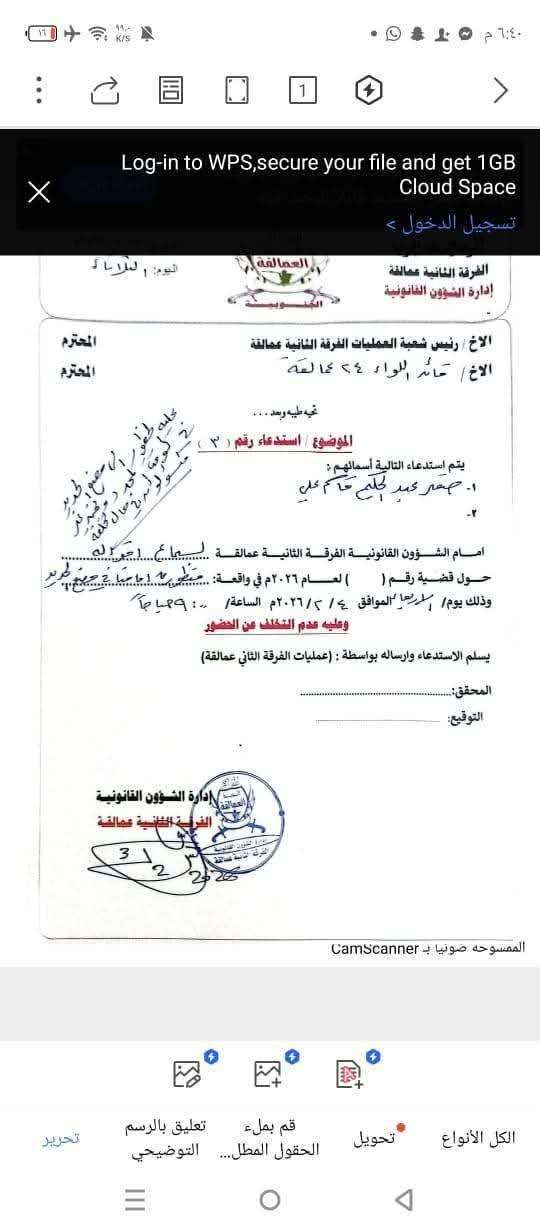 ٦:٤٠ م
٩٩,٠
K/S
١٦
1
Log-in to WPS,secure your file and get 1GB
Cloud Space
تسجيل الدخول >
الفرقة الثانية عمالقة
إدارة الشؤون القانونية
اليوم: الثلاثاء
العمالقة
الجنوبية
الاخ / رئيس شعبة العمليات الفرقة الثانية عمالقة المحترم
الاخ / قائد اللواء ٢٤ عمالقة المحترم
تحيه طيبه وبعد...
الموضوع / استدعاء رقم (٣)
يتم استدعاء التالية أسمائهم:
١- صقر عبد الحكيم قاسم علي
٢-
امام الشؤون القانونية الفرقة الثانية عمالقة لسماع اقواله
حول قضية رقم ( ) لعام ٢٠٢٦م في واقعة:
وذلك يوم/ الاربعاء الموافق ٤ / ٢ / ٢٠٢٦م الساعة/ ٩:٠٠ صباحاً
وعليه عدم التخلف عن الحضور
يسلم الاستدعاء وارساله بواسطة : (عمليات الفرقة الثاني عمالقة)
المحقق:
التوقيع:
إدارة الشؤون القانونية
الفرقة الثانية عمالقة
العمالقة
إدارة الشؤون القانونية
الفرقة الثانية عمالقة
3
2
2026
الممسوحه ضوئيا بـ CamScanner
الكل الأنواع
تحويل
قم بملء
الحقول المطل...
تعليق بالرسم
التوضيحي
تحرير